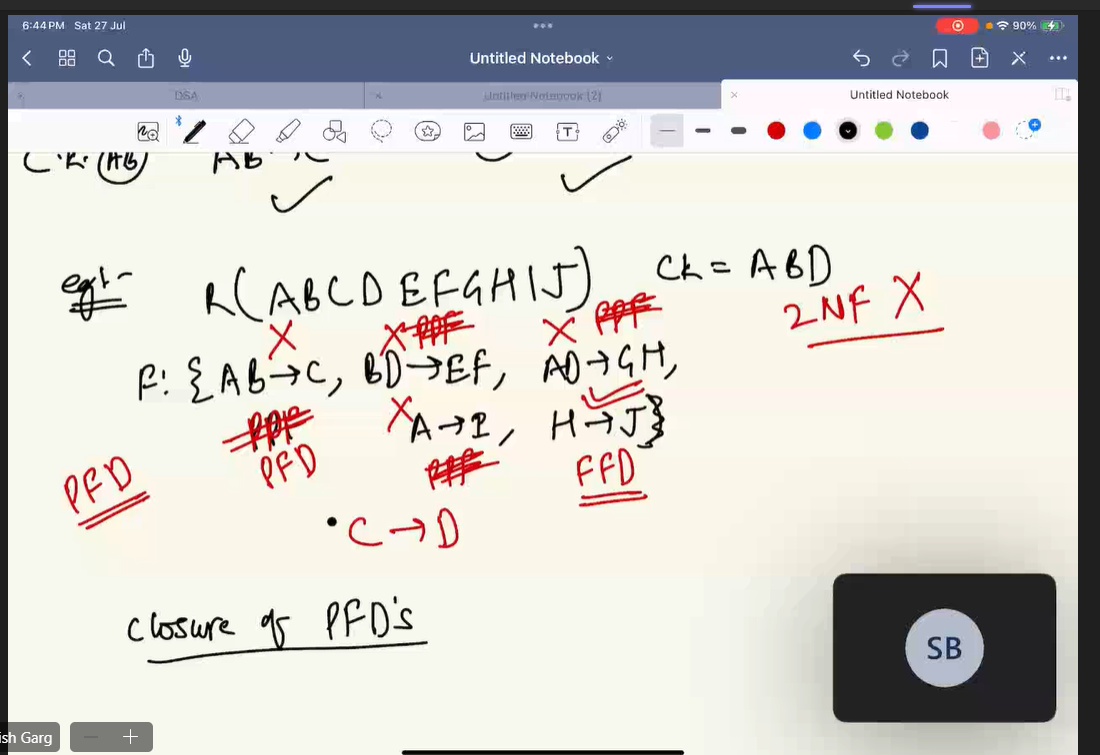 6:44 PM Sat 27 Jul
90%
Untitled Notebook
DSA
Untitled Notebook (2)
Untitled Notebook
C.K. (AB) AB
eg:- R(ABCDEFGHIJ) CK = ABD
2NF X
F: {AB→C, BD→EF, AD→GH,
A→I, H→J}
PFD
FFD
PFD
• C→D
closure of PFD's
SB
ish Garg